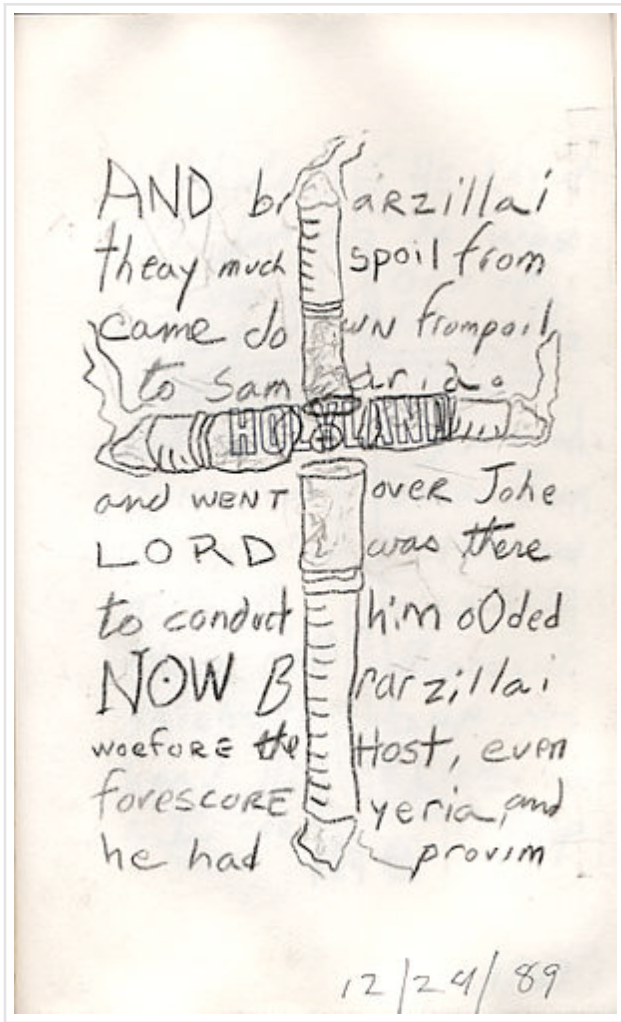 AND br arzillai
theay much spoil from
came do wn frompoil
to Sam aria.
HOLYLAND
and WENT over Johe
LORD was there
to conduct him oOded
NOW B rarzillai
woeforE the Host, even
forescorE yeria, and
he had provim
12/24/89